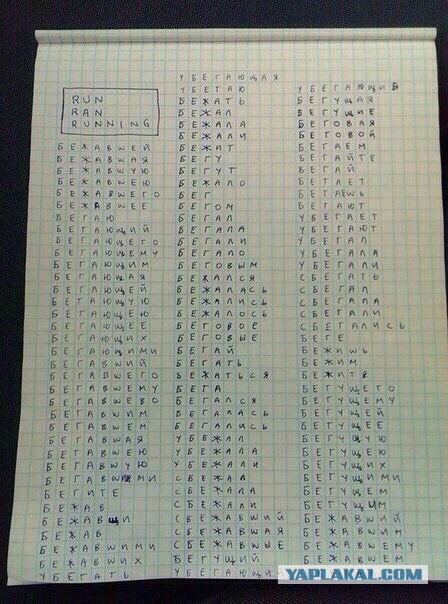 RUN
RAN
RUNNING
БЕЖАВШЕЙ
БЕЖАВШАЯ
БЕЖАВШУЮ
БЕЖАВШЕЮ
БЕЖАВШЕГО
БЕЖАВШЕЕ
БЕГАЮ
БЕГАЮЩИЙ
БЕГАЮЩЕГО
БЕГАЮЩЕМУ
БЕГАЮЩИМ
БЕГАЮЩАЯ
БЕГАЮЩЕЙ
БЕГАЮЩУЮ
БЕГАЮЩЕЮ
БЕГАЮЩЕЕ
БЕГАЮЩИХ
БЕГАЮЩИМИ
БЕГАВШИЙ
БЕГАВШЕГО
БЕГАВШЕМУ
БЕГАВШЕВО
БЕГАВШИМ
БЕГАВШЕМ
БЕГАВШАЯ
БЕГАВШЕЮ
БЕГАВШУЮ
БЕГАВШИМИ
БЕГИТЕ
БЕЖАВ
БЕЖАВШИ
БЕЖАВ
БЕЖАВШИМИ
БЕЖАВШИХ
УБЕГАТЬ
УБЕГАЮЩАЯ
УБЕГАЮ
БЕЖАТЬ
БЕЖАЛ
БЕЖАЛА
БЕЖАЛИ
БЕЖИТ
БЕГУ
БЕГУТ
БЕЖАЛО
БЕГ
БЕГОМ
БЕГАЛ
БЕГАЛА
БЕГАЛИ
БЕГАЛО
БЕГОВЫМ
БЕЖАЛСЯ
БЕЖАЛАСЬ
БЕЖАЛИСЬ
БЕЖАЛОСЬ
БЕГОВОЕ
БЕГОВЫЕ
БЕГАЙ
БЕГАТЬ
БЕЖАТЬСЯ
БЕГА
БЕГАЛСЯ
БЕГАЛАСЬ
БЕГАЛИСЬ
УБЕЖАЛ
УБЕЖАЛА
УБЕЖАЛИ
СБЕЖАЛ
СБЕЖАЛА
СБЕЖАЛИ
СБЕЖАВШИЙ
СБЕЖАВШАЯ
СБЕЖАВШЫЕ
БЕГУЩИЙ
УБЕГАЮЩИЙ
БЕГУЩАЯ
БЕГУЩИЕ
БЕГОВАЯ
БЕГОВОЙ
БЕГАЕМ
БЕГАЙТЕ
БЕГАЙ
БЕГАЕТ
БЕГАЕШЬ
БЕГАЮТ
УБЕГАЕТ
УБЕГАЮТ
УБЕГАЛ
УБЕГАЛА
УБЕГАЛИ
СБЕГАТЬ
СБЕГАЛ
СБЕГАЛА
СБЕГАЛИ
СБЕГАЛИСЬ
БЕГЕ
БЕЖИШЬ
БЕЖИМ
БЕЖИТЕ
БЕГУЩЕГО
БЕГУЩЕМУ
БЕГУЩЕЙ
БЕГУЩЕЕ
БЕГУЩУЮ
БЕГУЩЕЮ
БЕГУЩИХ
БЕГУЩИМИ
БЕГУЩЕМ
БЕГУЩЫМ
БЕЖАВШИЙ
БЕЖАВШИМ
БЕЖАВШЕМУ
БЕЖАВШЕМ
YAPLAKAL.COM